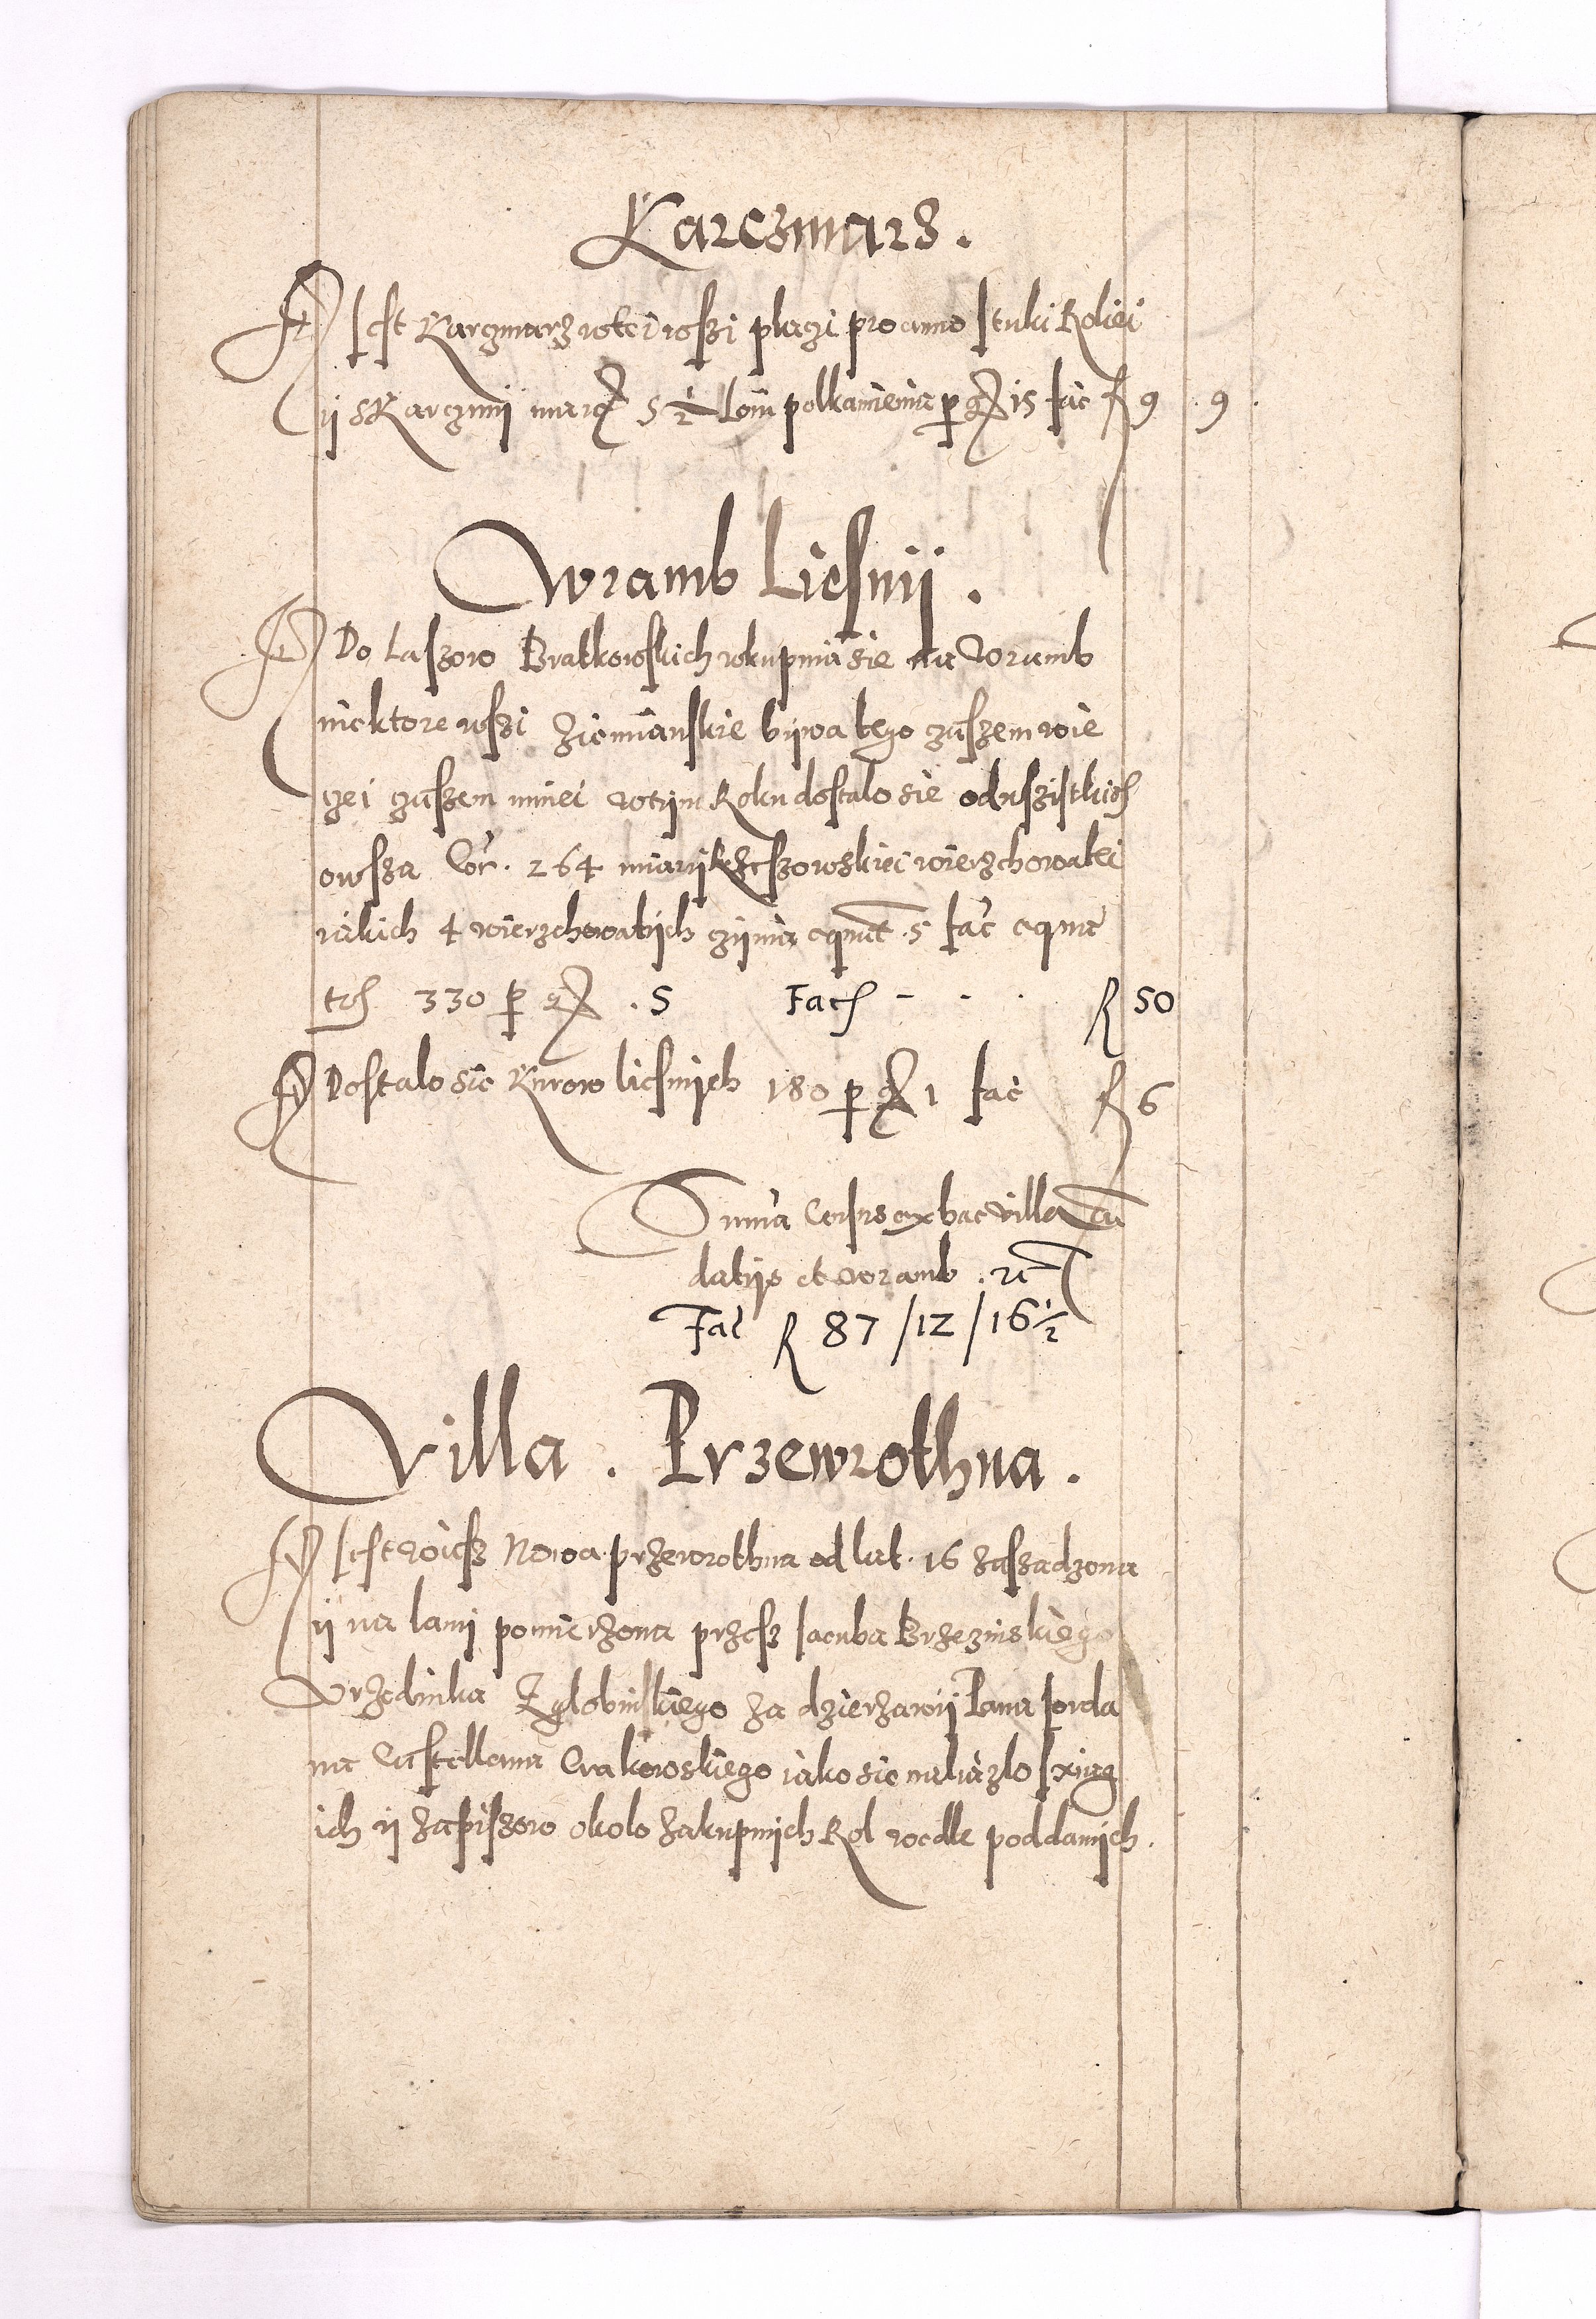 Karczmarz.
Iest Karczmarz wtei wszi placzi pro anno sztuki Roliei
ij sKarczmij marc 5 1/2 Loiu polkamienia per gr 15 fac R 9 . 9 .
Wramb Liesnij.
Do Laszow Bratkowskich wkupuia sie na Wramb
niektore wszi ziemianskie bijwa tego czaszem wie
czei czaszem mniei wtijm Roku dostalo sie odwszistkich
owsza Cor. 264 miarij Rzeszowskiei wierzchowatei
iakich 4 wierzchowatijch czijnia equat. 5 fac equa
tos 330 per gr . 5 Facit - . . R 50
Dostalo sie Kurow liesnijch 180 per gr 1 fac R 6
Suma Census ex hac villa cu
datijs et wramb . rc
Fac R 87 / 12 / 16 1/2
Villa . Przewrothna .
Iest wiesz Nowa przewrothna od lat. 16 zaszadzona
ij na lanij pomierzona przesz Iacuba Brzezinskiego
Vrzednika Zglobinskiego za dzierzawij Pana Iorda
na Castellana Crakowskiego iako sie nalazlo sxiag
ich ij zapiszow okolo zakupnich Rol wedle poddanijch.